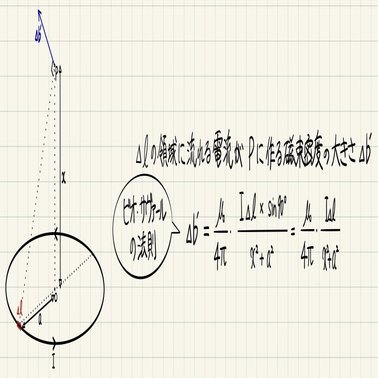 Δb'
P
x
Δlの領域に流れる電流がPに作る磁束密度の大きさΔb'
ビオ・サヴァール
の法則
Δb' = μ₀/4π · IΔl × sin90°/x²+a² = μ₀/4π · IΔl/x²+a²
Δl
a
I